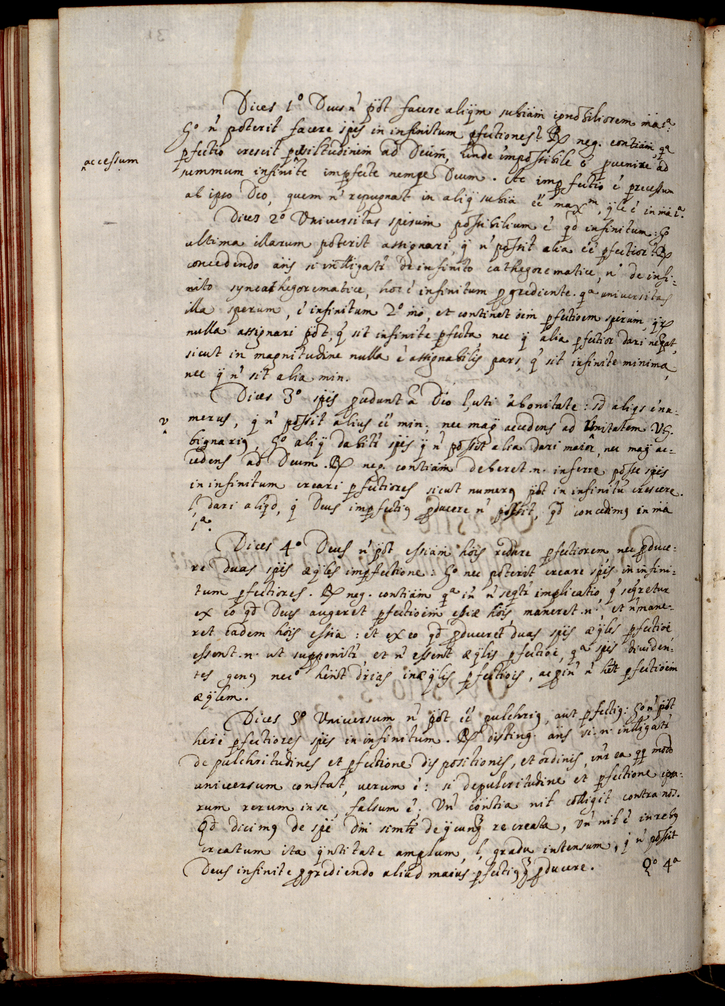 Dices 1º Deus n̄ põt facere aliq̃m subiam ignobiliorem mãª.
Gº n̄ poterit facere sp̃es in infinitum p̃fectiores? R neg. contiam qª
p̃fectio crescit p similtudinem ad Deum, unde impossibile ẽ p̃uenire ad
accessum
summum infinite imp̃fecte nempe Deum. At imp̃fectio ẽ p̃ recessum
ab ipso Deo, quem n̄ repugnat in aliq̃ subia ẽe max̃, q̃lẽ ẽ in mãª.
Dices 2º Universitas sp̃erum possibilium ẽ q̃d infinitum: Gº
ultima illarum poterit assignari, q̃ n̄ possit alia ẽe p̃fectior? R
concedendo ans si intelligatr̃ de infinito cathegorematice, n̄ de infi-
nito syncathegorematice, hoc ẽ infinitum p̃grediente. qª universitas
illa sperum, ẽ infinitum 2º mõ, et continet ẽem p̃fectioem sp̃erum, q̃
nulla assignari põt, q̃ sit infinite p̃fecta nec q̃ alia p̃fectior dari neq̃at,
sicut in magnitudine nulla ẽ assignabilis pars, q̃ sit infinite minima,
nec q̃ n̄ sit alia min.
Dices 3º sp̃es p̃cedunt à Deo l, uti ab unitate: sd aliq̃s ẽ nu-
v
merus, q̃ n̄ possit alius ẽe min. nec mag̃ accedens ad unitatem VG.
binarius, Gº aliq̃ dabitr̃ sp̃es q̃ n̄ possit alia dari maior, nec mag̃ ac-
cedens ad Deum. R neg. contiam deberet .n. inferre posse sp̃es
in infinitum creari p̃fectiores sicut numerus põt in infinitũ crescere.
l, dari aliq̃d, q̃ Deus imp̃fectius p̃ducere n̄ possit, q̃d concedimus in mã
1ª.
Dices 4º Deus n̄ põt essiam hõis reddere p̃fectiorem nec p̃duce-
re duas sp̃es æq̃les imp̃fectione: Gº nec poterit creare sp̃es in infini-
tum p̃fectiores. R neg. contiam qª in 1º seq̃tr̃ implicatio, q̃ seq̃retur
ex eo q̃d Deus augeret p̃fectioem essiæ hõis maneret .n. et n̄ mane-
ret eadem hõis essia: et ex eo q̃d p̃duceret duas sp̃es æq̃les p̃fectioẽ
essent .n. ut supponitr̃ et n̄ essent æq̃lis p̃fectiõe, qª sp̃es diuiden-
tes genus necº hẽnt dr̃ias inæq̃lis p̃fectiõis, ac p̃in n̄ hẽt p̃fectioẽm
æq̃lem.
Dices 5º Universum n̄ põt ẽe pulchrius, aut p̃fectius: Gº n̄ põt
hẽre p̃fectiores sp̃es in infinitum. R disting. ans si .n. intelligatr̃
de pulchritudines et p̃fectione dispositionis, et ordinis, intr̃ ea q̃ modo
universum constat, verum ẽ: si de pulcritudine et p̃fectione ipsa-
rum rerum in se, falsum ẽ. Un̄ contia nil colligit contra nos.
Q̃d dicimus de sp̃e dm̃ simlr̃ de q̃cunq̃ re creata, un̄ nil ẽ in rebus
creatum ita q̃ntitate amplum, l, gradu intensum, q̃ n̄ possit
Deus infinite p̃grediendo aliud maius p̃fectiusq̃ p̃ducere. Qº 4ª